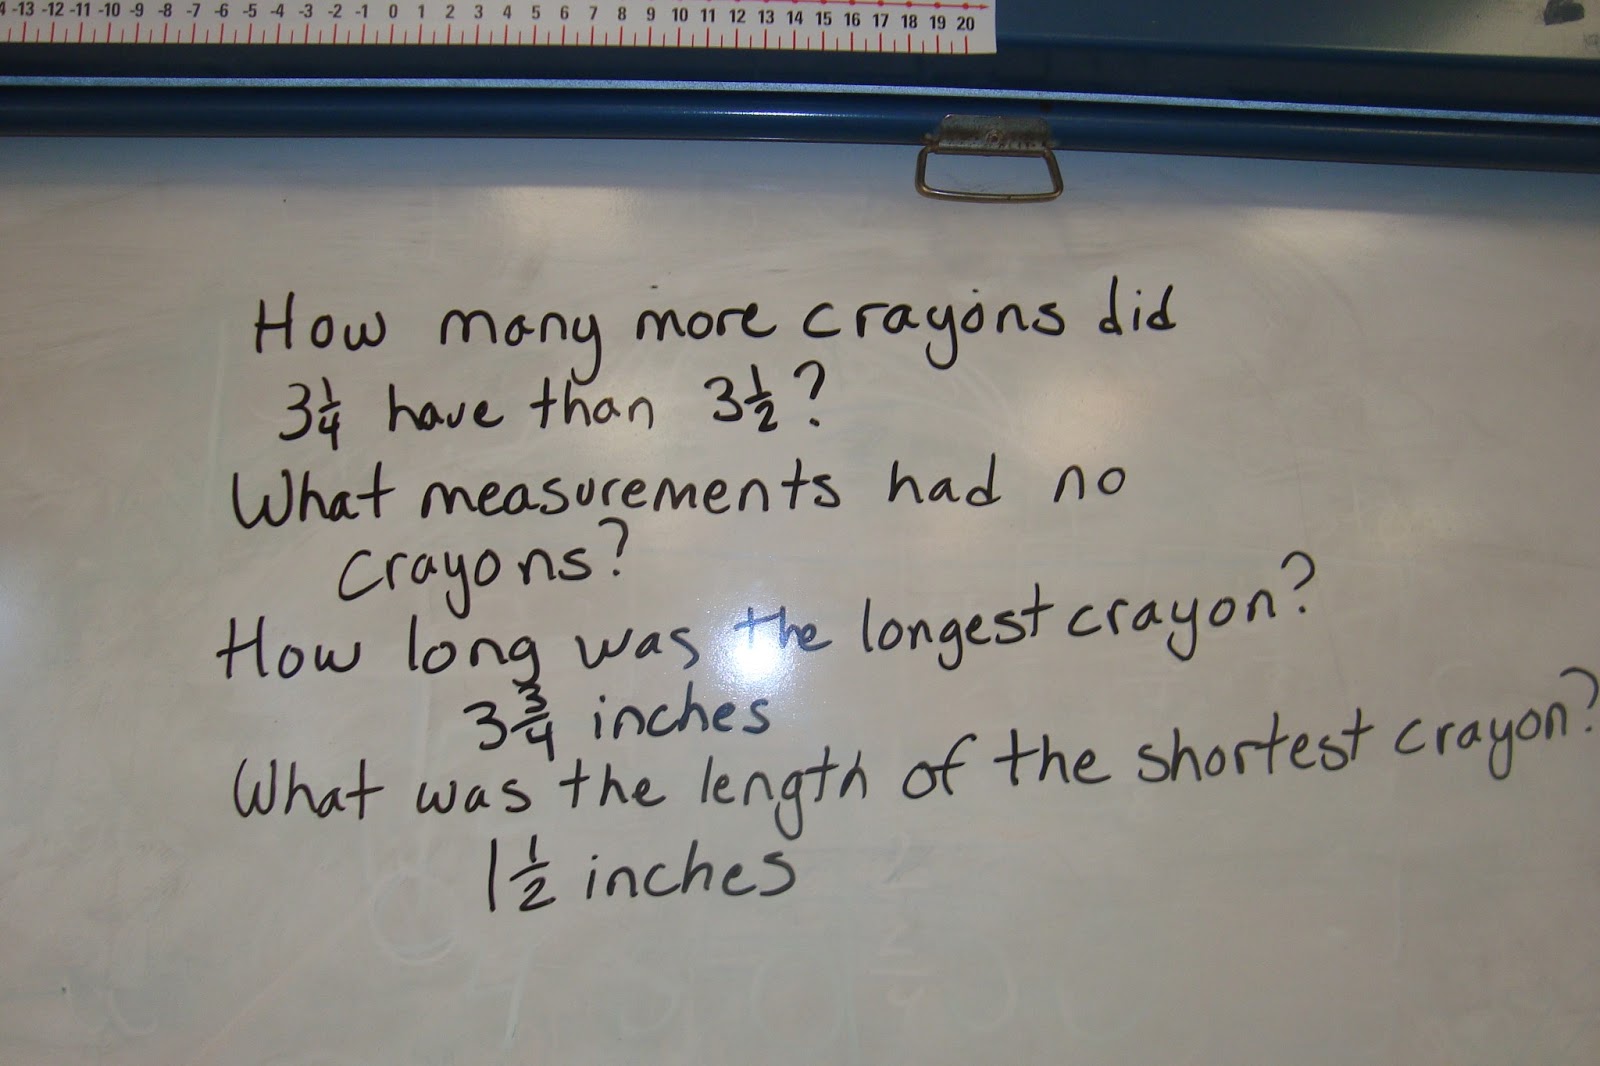 -13 -12 -11 -10 -9 -8 -7 -6 -5 -4 -3 -2 -1 0 1 2 3 4 5 6 7 8 9 10 11 12 13 14 15 16 17 18 19 20
How many more crayons did
3 1/4 have than 3 1/2?
What measurements had no
crayons?
How long was the longest crayon?
3 3/4 inches
What was the length of the shortest crayon?
1 1/2 inches